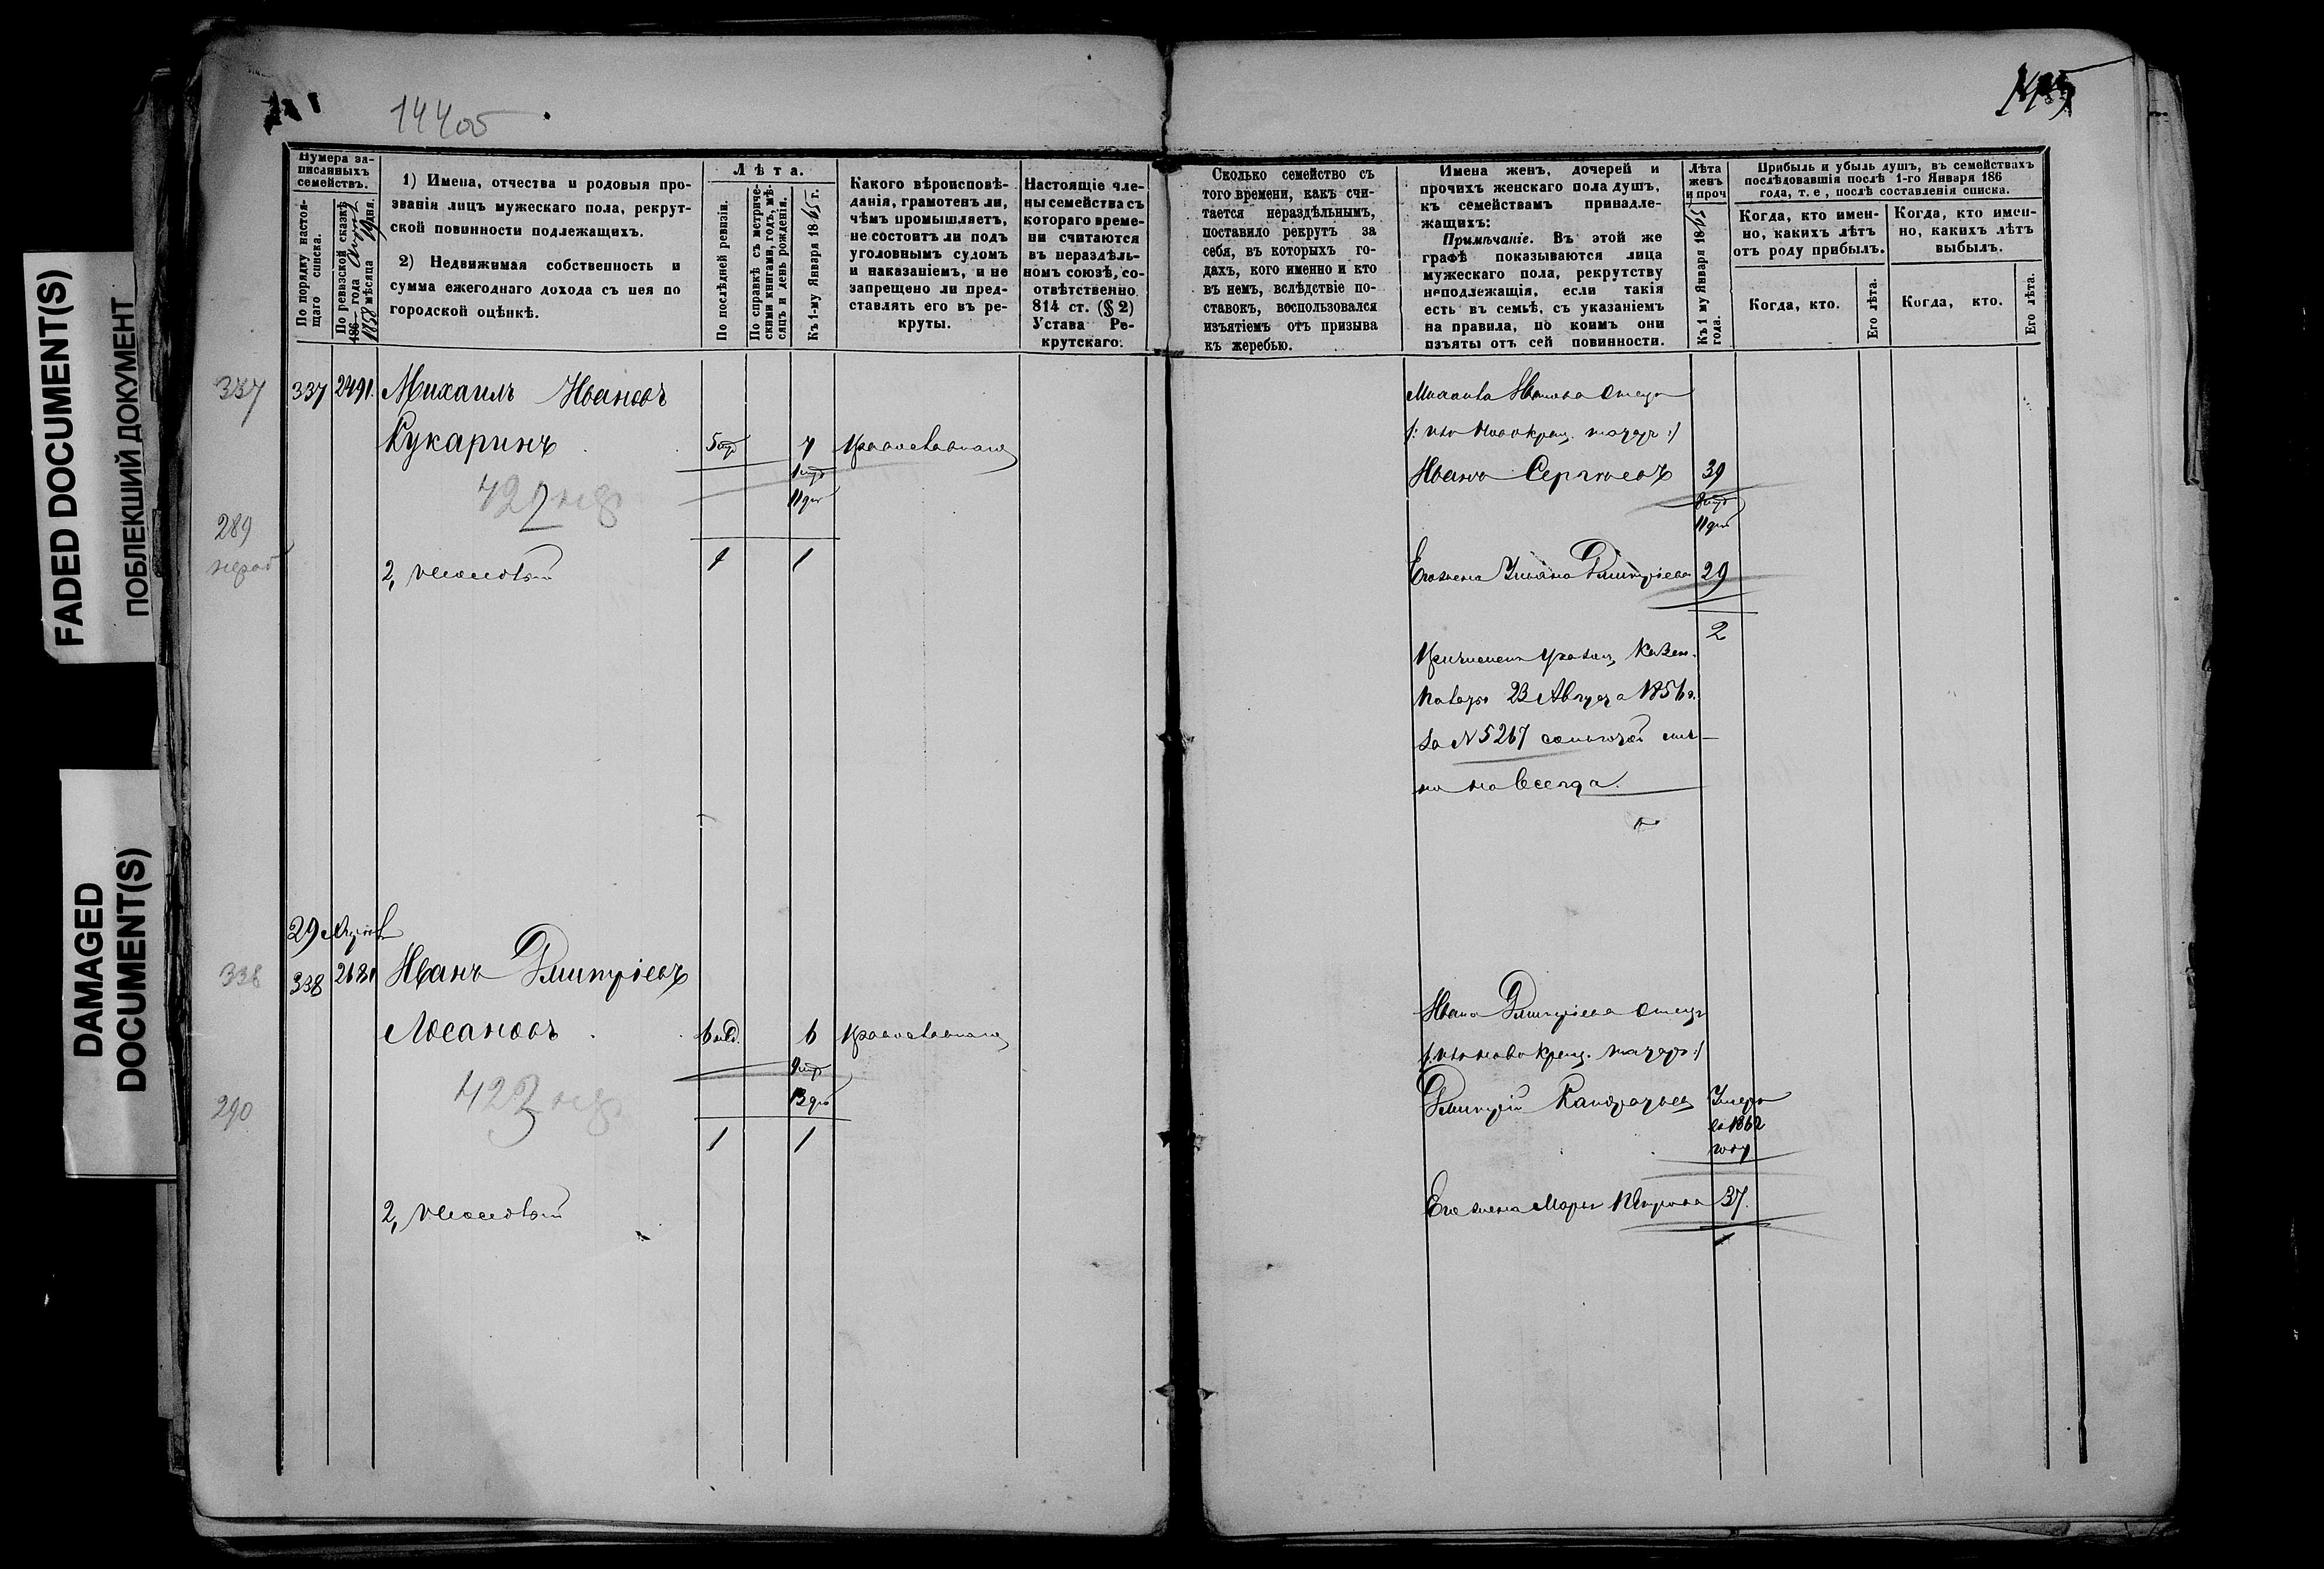 FADED DOCUMENT(S)
ПОБЛЕКШИЙ ДОКУМЕНТ
DAMAGED
DOCUMENT(S)
144об
Нумера за-
писанныхъ
семействъ.
По порядку настоя-
щаго списка.
По ревизской сказкѣ
186 года
1858 мѣсяца дня.
1) Имена, отчества и родовыя про-
званія лицъ мужескаго пола, рекрут-
ской повинности подлежащихъ.
2) Недвижимая собственность и
сумма ежегоднаго дохода съ нея по
городской оцѣнкѣ.
Лѣта.
По послѣдней ревизіи.
По справкѣ съ метриче-
скими книгами, годъ, мѣ-
сяцъ и день рожденія.
Къ 1-му Января 1865 г.
Какого вѣроисповѣ-
данія, грамотенъ ли,
чѣмъ промышляетъ,
не состоитъ ли подъ
уголовнымъ судомъ
и наказаніемъ, и не
запрещено ли пред-
ставлять его въ ре-
круты.
Настоящіе чле-
ны семейства съ
котораго време-
ни считаются
въ нераздѣль-
номъ союзѣ, со-
отвѣтственно
814 ст. (§ 2)
Устава Ре-
крутскаго.
337
337
2491
Михаилъ Ивановъ
Кукаринъ
7
Православнаго
422
289
1
1
2,
29
338
338
Иванъ Дмитріевъ
Лосановъ
6
Православнаго
423
290
1
1
2,
Сколько семейство съ
того времени, какъ счи-
тается нераздѣльнымъ,
поставило рекрутъ за
себя, въ которыхъ го-
дахъ, кого именно и кто
въ немъ, вслѣдствіе по-
ставокъ, воспользовался
изъятіемъ отъ призыва
къ жеребью.
Имена женъ, дочерей и
прочихъ женскаго пола душъ,
къ семействамъ принадле-
жащихъ:
Примѣчаніе. Въ этой же
графѣ показываются лица
мужескаго пола, рекрутству
неподлежащія, если такія
есть въ семьѣ, съ указаніемъ
на правила, по коимъ они
изъяты отъ сей повинности.
Лѣта
женъ
и проч
Къ 1 му Января 1865
года.
Прибыль и убыль душъ, въ семействахъ
послѣдовавшія послѣ 1-го Января 186
года, т. е., послѣ составленія списка.
Когда, кто имен-
но, какихъ лѣтъ
отъ роду прибылъ.
Когда, кто имен-
но, какихъ лѣтъ
выбылъ.
Когда, кто.
Его лѣта.
Когда, кто.
Его лѣта.
Михаила Иванова отецъ
Иванъ Сергѣевъ 39
Его жена Ульяна Дмитріева 29
2
23 Августа 1856 г.
за N 5267
на всегда.
Ивана Дмитріева отецъ
Дмитрій Кандратьев Умеръ
въ 1862
году
Его жена Марья Петрова 37.
1